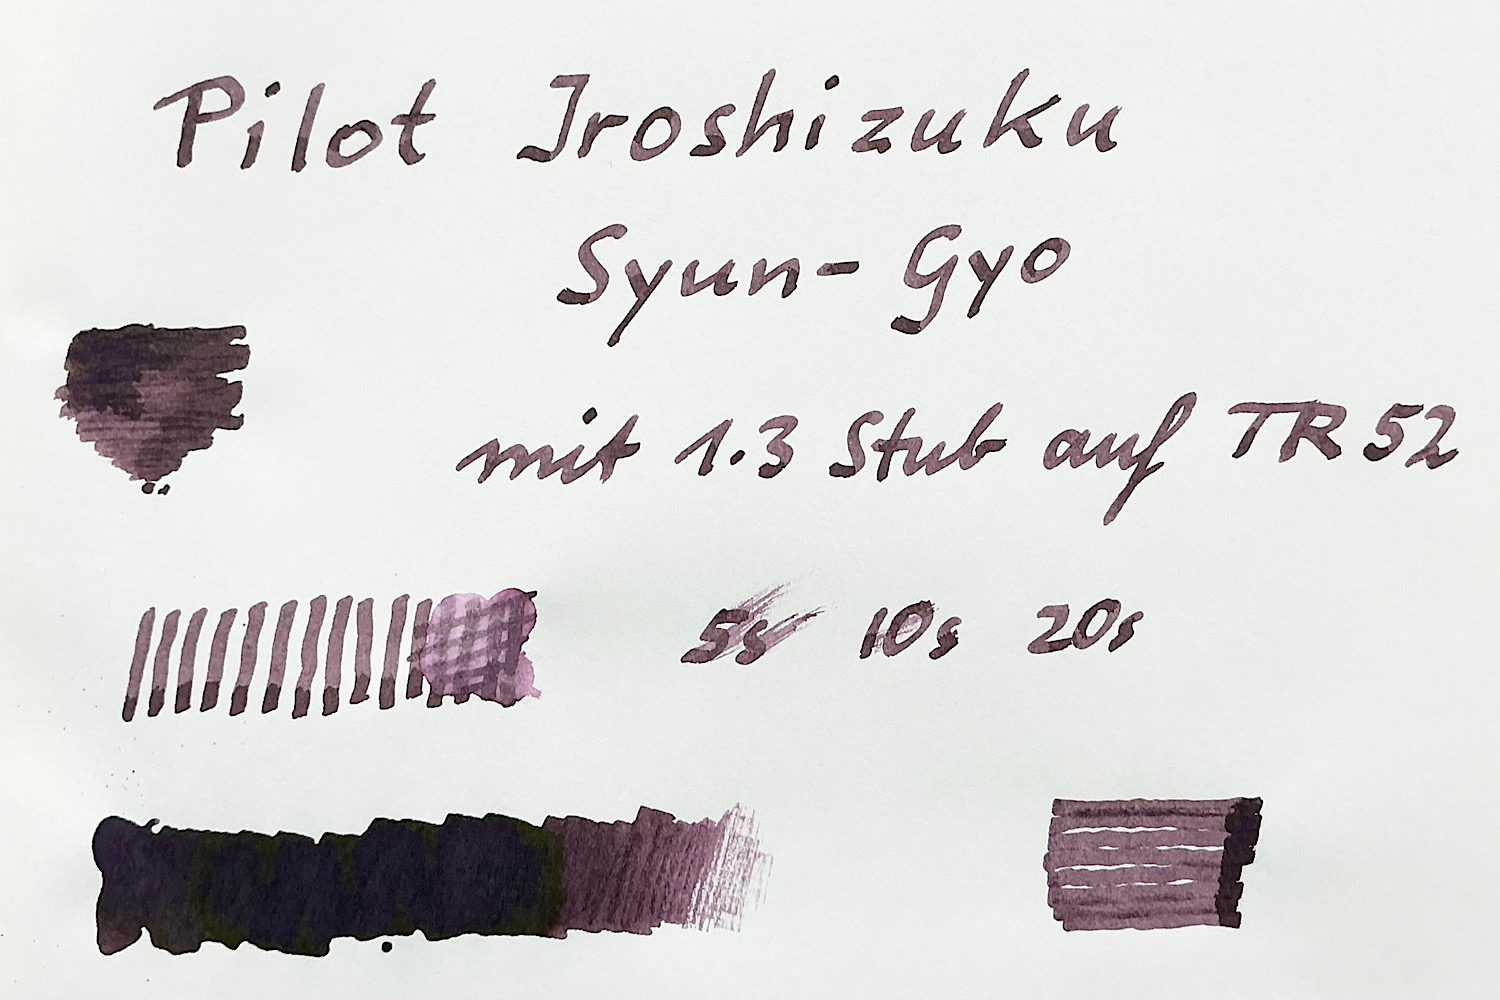 Pilot Iroshizuku
Syun-Gyo
mit 1.3 Stub auf TR52
5s 10s 20s